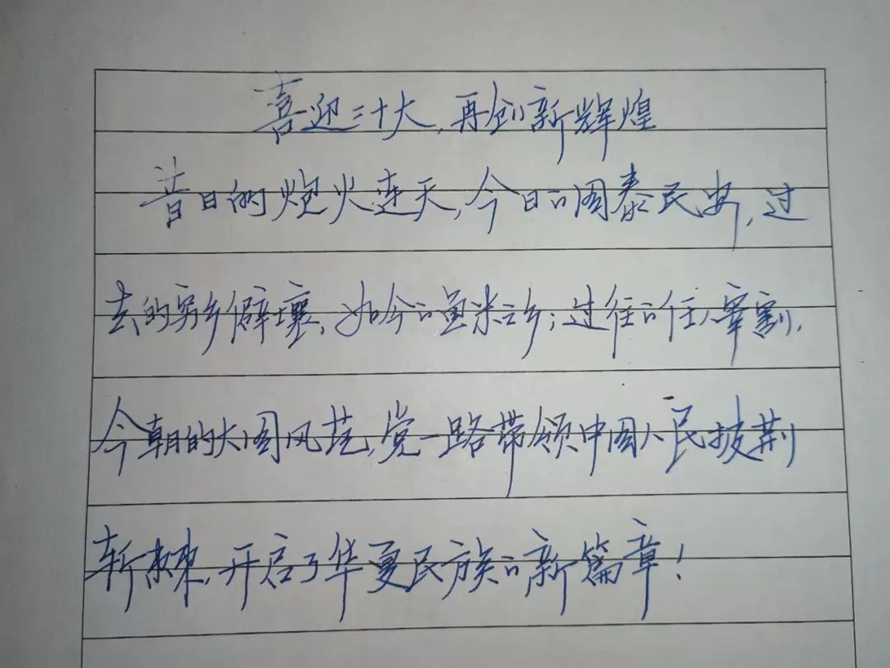 喜迎二十大,再创新辉煌
昔日的炮火连天,今日的国泰民安,过
去的穷乡僻壤,如今的鱼米之乡;过往的任人宰割,
今朝的大国风范,党一路带领中国人民披荆
斩棘,开启了华夏民族的新篇章!